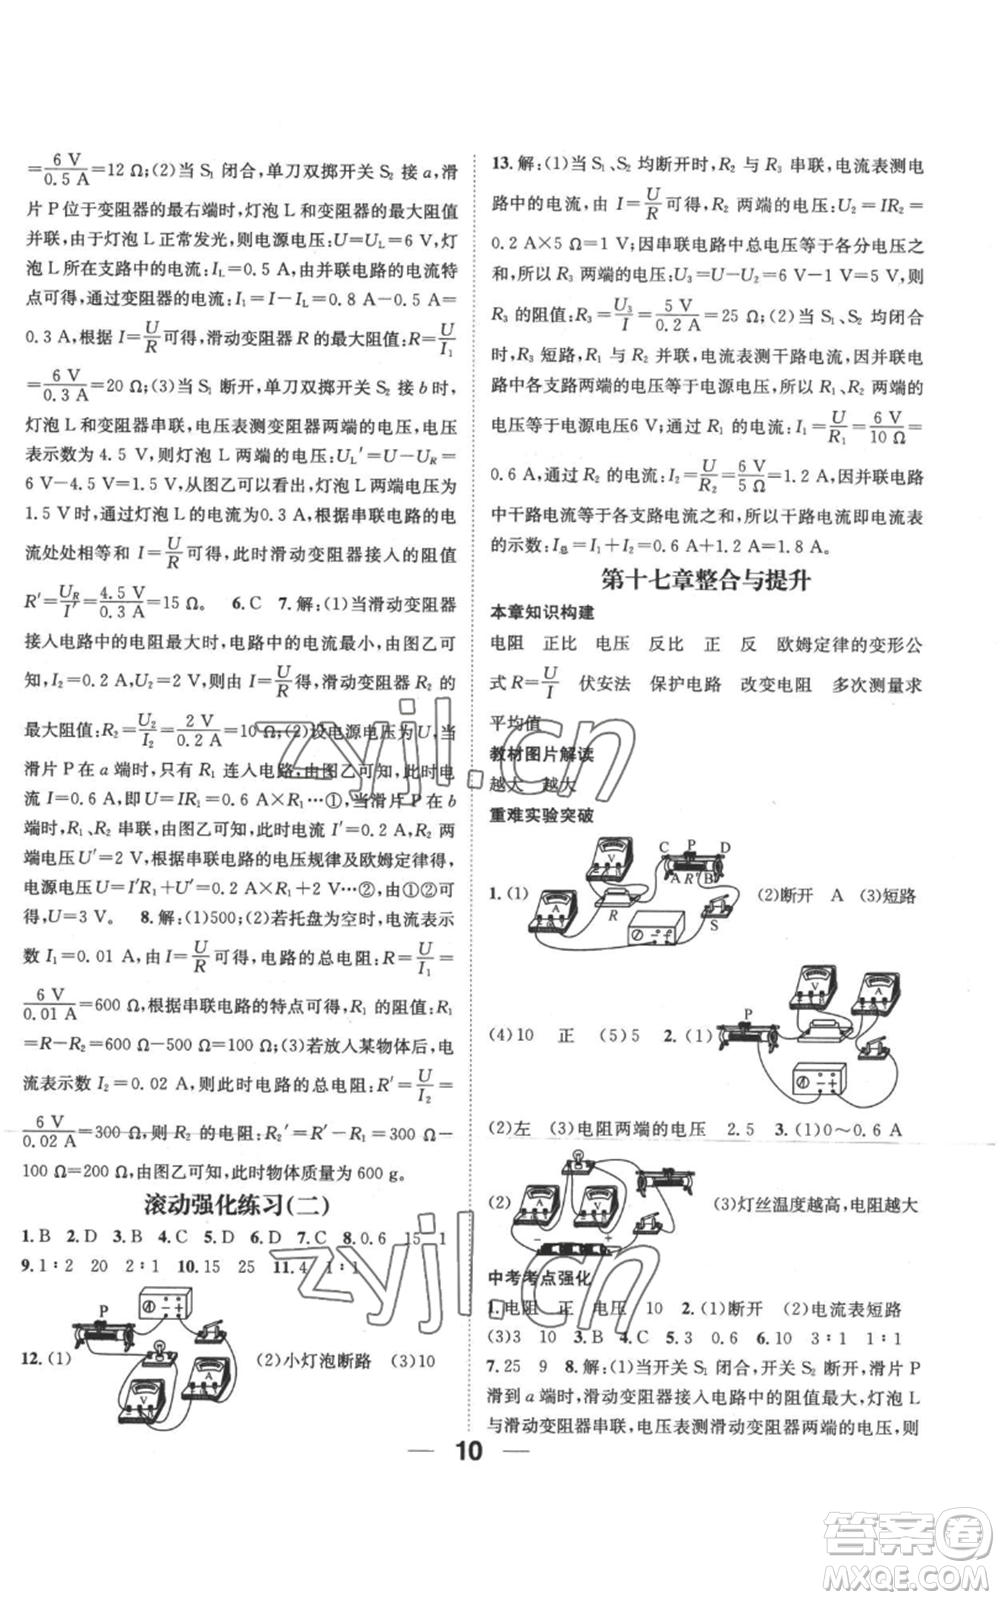 =6 V/0.5 A=12 Ω;(2)当 S₁ 闭合,单刀双掷开关 S₂ 接 a,滑
片 P位于变阻器的最右端时,灯泡 L 和变阻器的最大阻值
并联,由于灯泡 L 正常发光,则电源电压:U=U_L=6 V,灯
泡 L 所在支路中的电流:I_L=0.5 A,由并联电路的电流特
点可得,通过变阻器的电流:I₁=I-I_L=0.8 A-0.5 A=
0.3 A,根据 I=U/R可得,滑动变阻器 R 的最大阻值:R=U/I₁
=6 V/0.3 A=20 Ω;(3)当 S₁ 断开,单刀双掷开关 S₂ 接 b 时,
灯泡 L 和变阻器串联,电压表测变阻器两端的电压,电压
表示数为 4.5 V,则灯泡 L 两端的电压:U_L′=U-U_R=
6 V-4.5 V=1.5 V,从图乙可以看出,灯泡 L 两端电压为
1.5 V时,通过灯泡 L 的电流为0.3 A,根据串联电路的电
流处处相等和 I=U/R可得,此时滑动变阻器接入的阻值
R′=U_R/I′=4.5 V/0.3 A=15 Ω。 6.C 7.解:(1)当滑动变阻器
接入电路中的电阻最大时,电路中的电流最小,由图乙可
知,I₂=0.2 A,U₂=2 V,根据 I=U/R可得,滑动变阻器 R₂ 的
最大阻值:R₂=U₂/I₂=2 V/0.2 A=10 Ω;(2)设电源电压为 U,当
滑片 P在 a 端时,只有 R₁ 连入电路,由图乙可知,此时电
流 I=0.6 A,即 U=IR₁=0.6 A×R₁…①,当滑片 P 在 b
端时,R₁、R₂ 串联,由图乙可知,此时电流 I′=0.2 A,R₂ 两
端电压U′=2 V,根据串联电路的电压规律及欧姆定律得,
电源电压 U=I′R₁+U′=0.2 A×R₁+2 V…②,由①②可
得,U=3 V。 8.解:(1)500;(2)若托盘为空时,电流表示
数 I₁=0.01 A,由 I=U/R可得,电路的总电阻:R=U/I₁=
6 V/0.01 A=600 Ω,根据串联电路的特点可得,R₁ 的阻值:R₁
=R-R₂=600 Ω-500 Ω=100 Ω;(3)若放入某物体后,电
流表示数 I₂=0.02 A,则此时电路的总电阻:R′=U/I₂=
6 V/0.02 A=300 Ω,则 R₂ 的电阻:R₂′=R′-R₁=300 Ω-
100 Ω=200 Ω,由图乙可知,此时物体质量为 600 g。
滚动强化练习(二)
1.B 2.D 3.B 4.C 5.D 6.D 7.C 8.0.6 15 1
9.1∶2 20 2∶1 10.15 25 11.4 1∶1
P
V
A
12.(1) (2)小灯泡断路 (3)10
13.解:(1)当 S₁、S₂ 均断开时,R₂ 与 R₃ 串联,电流表测电
路中的电流,由 I=U/R可得,R₂ 两端的电压:U₂=IR₂=
0.2 A×5 Ω=1 V;因串联电路中总电压等于各分电压之
和,所以 R₃ 两端的电压:U₃=U-U₂=6 V-1 V=5 V,则
R₃ 的阻值:R₃=U₃/I=5 V/0.2 A=25 Ω;(2)当 S₁、S₂ 均闭合
时,R₃ 短路,R₁ 与 R₂ 并联,电流表测干路电流,因并联电
路中各支路两端的电压等于电源电压,所以 R₁、R₂ 两端的
电压等于电源电压6 V,通过 R₁ 的电流:I₁=U/R₁=6 V/10 Ω=
0.6 A,通过 R₂ 的电流:I₂=U/R₂=6 V/5 Ω=1.2 A,因并联电路
中干路电流等于各支路电流之和,所以干路电流即电流表
的示数:I总=I₁+I₂=0.6 A+1.2 A=1.8 A。
第十七章整合与提升
本章知识构建
电阻 正比 电压 反比 正 反 欧姆定律的变形公
式 R=U/I 伏安法 保护电路 改变电阻 多次测量求
平均值
教材图片解读
越大 越大
重难实验突破
C P D
V
A R′ B
A
R
S
1.(1) (2)断开 A (3)短路
(4)10 正 (5)5 2.(1)
P
V
A
(2)左 (3)电阻两端的电压 2.5 3.(1)0～0.6 A
(2) (3)灯丝温度越高,电阻越大
A
V
中考考点强化
1.电阻 正 电压 10 2.(1)断开 (2)电流表短路
(3)3 10 3.B 4.C 5.D 6.10 3∶1 1∶1
7.25 9 8.解:(1)当开关 S₁ 闭合、开关 S₂ 断开,滑片 P
滑到 a 端时,滑动变阻器接入电路中的阻值最大,灯泡 L
与滑动变阻器串联,电压表测滑动变阻器两端的电压,则
10
zyjl.cn
zyjl.cn
答案卷
MXQE.COM